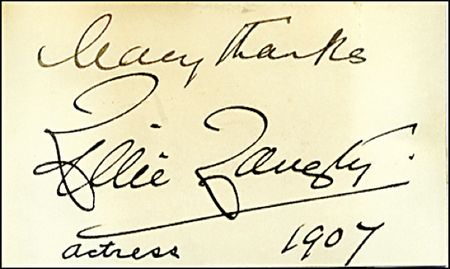 Many thanks
Lillie Langtry.
actress 1907